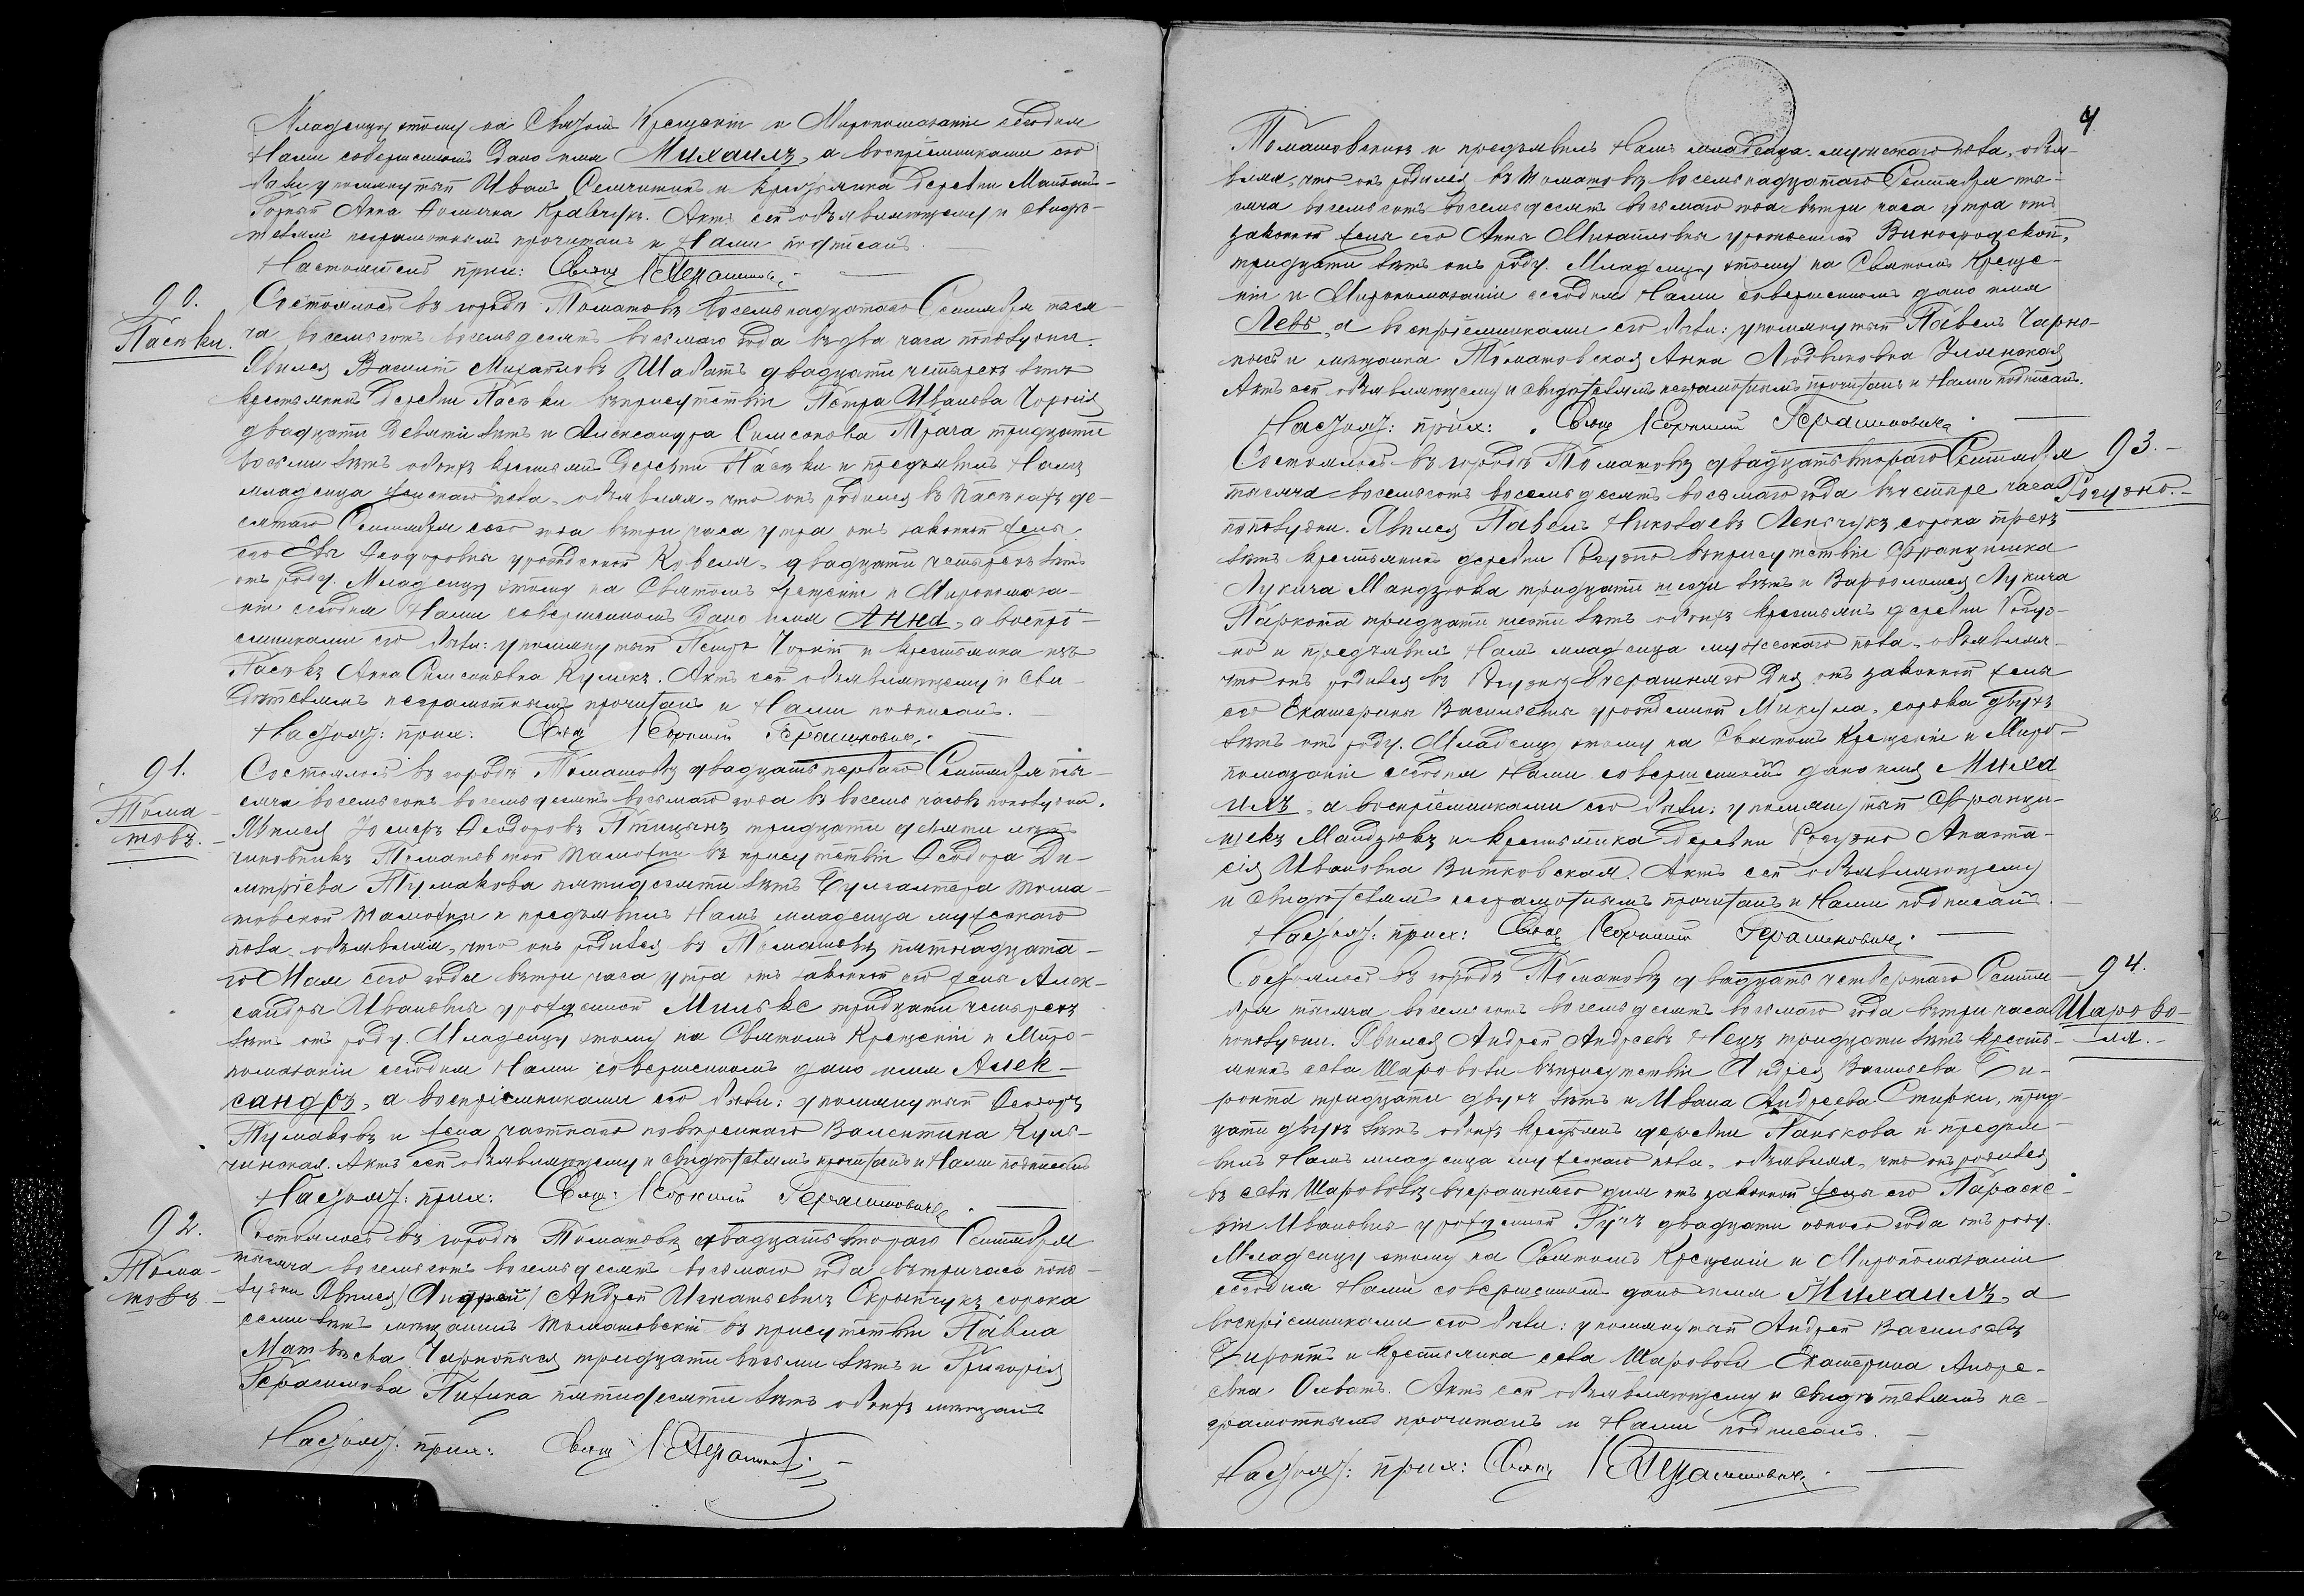 Младенцу этому на Святом Крещеніи и Мѵропомазаніи сегодня
Нами совершенномъ дано имя Михаилъ, а воспріемниками его
были упомянутый Иванъ и крестьянка деревни Майдан-
Горный Анна Кравчукъ. Актъ сей объявляющему и свидѣ-
телямъ неграмотнымъ прочитанъ и Нами подписанъ.
Настоятель прих: Свящ
90.
Пасѣки.
Состоялось въ городѣ Томашовѣ восемьнадцатаго Сентября тыся-
ча восемьсотъ восемьдесятъ восьмаго года въ два часа пополудни.
Явился Василій Михайловъ Шабатъ двадцати четырехъ лѣтъ
крестьянинъ деревни Пасѣки въ присутствіи Петра Иванова Чорнія
двадцати девяти лѣтъ и Александра Симеонова Ткача тридцати
восьми лѣтъ обоихъ крестьянъ деревни Пасѣки и предъявилъ Намъ
младенца женскаго пола, объявляя, что онъ родился въ Пасѣкахъ де-
сятаго Сентября сего года въ три часа утра отъ законной жены
его Евы Ѳеодоровны урожденной Ковеля, двадцати четырехъ лѣтъ
отъ роду. Младенцу этому на Святомъ Крещеніи и Мѵропомаза-
ніи сегодня Нами совершенномъ дано имя Анна, а воспрі-
емниками его были: упомянутый Петръ Чорній и крестьянка изъ
Пасѣкъ Анна Симеоновна Кушикъ. Актъ сей объявляющему и сви-
дѣтелямъ неграмотнымъ прочитанъ и Нами подписанъ.
Настоят: прих: Свящ Корнилій Герашимовичъ.
91.
Тома-
шовъ.
Состоялось въ городѣ Томашовѣ двадцать перваго Сентября ты-
сяча восемьсотъ восемьдесятъ восьмаго года въ восемь часовъ пополудни.
Явился Ѳеодоровъ Птицынъ тридцати девяти лѣтъ
чиновникъ Томашовской таможни въ присутствіи Ѳеодора Ди-
митріева Тумакова пятидесяти лѣтъ бухгалтера Тома-
шовской таможни и предъявилъ Намъ младенца мужескаго
пола, объявляя, что онъ родился въ Томашовѣ пятнадцата-
го Мая сего года въ три часа утра отъ законной его жены Алек-
сандры Ивановны урожденной Мильке тридцати четырехъ
лѣтъ отъ роду. Младенцу этому на Святомъ Крещеніи и Мѵро-
помазаніи сегодня Нами совершенномъ дано имя Алек-
сандръ, а воспріемниками его были: упомянутый Ѳеодоръ
Тумаковъ и жена частнаго повѣреннаго Валентина Куль-
чинская. Актъ сей объявляющему и свидѣтелямъ прочитанъ и Нами подписанъ
Настоят: прих: Свящ: Корнилій Герашимовичъ.
92.
Тома-
шовъ.
Состоялось въ городѣ Томашовѣ двадцать втораго Сентября
тысяча восемьсотъ восемьдесятъ восьмаго года въ три часа попо-
лудни Явился (Андрей) Андрей Игнатьевичъ Скрыпчукъ сорока
семи лѣтъ мѣщанинъ Томашовскій въ присутствіи Павла
Матвѣева Чарнопыся тридцати восьми лѣтъ и Григорія
Герасимова Пивика пятидесяти лѣтъ обоихъ мѣщанъ
Настоят: прих: Свящ
4
Томашовскихъ и предъявилъ Намъ младенца мужескаго пола, объя-
вляя, что онъ родился въ Томашовѣ восемьнадцатаго Сентября ты-
сяча восемьсотъ восемьдесятъ восьмаго года въ три часа утра отъ
законной жены его Анны Михайловны урожденной Виногродской,
тридцати лѣтъ отъ роду. Младенцу этому на Святомъ Креще-
ніи и Мѵропомазаніи сегодня Нами совершенномъ дано имя
Левъ, а воспріемниками его были: упомянутый Павелъ Чарно-
пысь и мѣщанка Томашовская Анна Людвиковна
Актъ сей объявляющему и свидѣтелямъ неграмотнымъ прочитанъ и Нами подписанъ.
Настоят: прих: Свящ Корнилій Герашимовичъ.
93.
Рогузно.
Состоялось въ городѣ Томашовѣ двадцать втораго Сентября
тысяча восемьсотъ восемьдесятъ восьмаго года въ четыре часа
пополудни. Явился Павелъ Николаевъ Левчукъ сорока трехъ
лѣтъ крестьянинъ деревни Рогузно въ присутствіи Францишка
Лукича Мандзюка тридцати шести лѣтъ и Варѳоломея Лукича
Паркота тридцати шести лѣтъ обоихъ крестьянъ деревни Рогуз-
но и предъявилъ Намъ младенца мужескаго пола, объявляя,
что онъ родился въ Рогузнѣ вчерашняго дня отъ законной жены
его Екатерины Васильевны урожденной Микула, сорока двухъ
лѣтъ отъ роду. Младенцу этому на Святомъ Крещеніи и Мѵро-
помазаніи сегодня Нами совершенномъ дано имя Миха
илъ, а воспріемниками его были: упомянутый Франци-
шекъ Мандзюкъ и крестьянка деревни Рогузно Анаста-
сія Ивановна Витковская. Актъ сей объявляющему
и свидѣтелямъ неграмотнымъ прочитанъ и Нами подписанъ.
Настоят: прих: Свящ Корнилій Герашимовичъ.
94.
Шарово-
ля.
Состоялось въ городѣ Томашовѣ двадцать четвертаго Сентя-
бря тысяча восемьсотъ восемьдесятъ восьмаго года въ три часа
пополудни. Явился Андрей Андреевъ Нецъ тридцати лѣтъ кресть-
янинъ села Шароволи въ присутствіи Андрея Васильева Ги-
ронта тридцати двухъ лѣтъ и Ивана Андреева Стирки, трид-
цати двухъ лѣтъ обоихъ крестьянъ деревни Панькова и предъя-
вилъ Намъ младенца мужескаго пола, объявляя, что онъ родился
въ селѣ Шароволѣ вчерашняго дня отъ законной жены его Параске-
віи Ивановны урожденной Гучъ двадцати одного года отъ роду.
Младенцу этому на Святомъ Крещеніи и Мѵропомазаніи
сегодня Нами совершенномъ дано имя Михаилъ, а
воспріемниками его были: упомянутый Андрей Васильевъ
Гиронтъ и крестьянка села Шароволи Екатерина Андре-
евна. Актъ сей объявляющему и свидѣтелямъ не-
грамотнымъ прочитанъ и Нами подписанъ.
Настоят: прих: Свящ